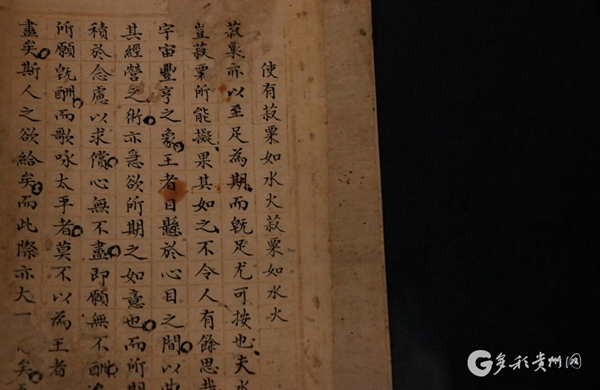 使有菽粟如水火菽粟如水火
菽粟亦以至足為期而旣足尤可按也夫水
豈菽粟所能擬果其如之不令人有餘思哉
宇宙豐亨之象王者日懸於心目之間以
其經營之術亦急欲所期之如意也而所期
積於念慮以求償心無不盡即願無不酬
所願旣酬而歌咏太平者莫不以為王者
盡矣斯人之欲給矣而此際亦大
多彩贵州网